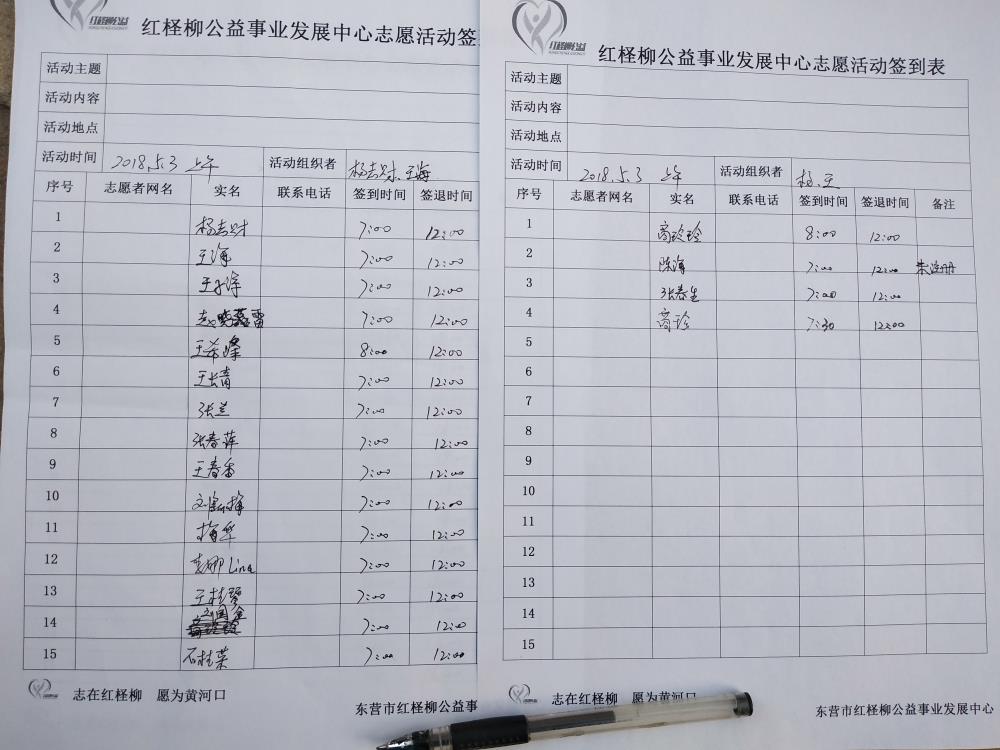 红柽柳公益事业发展中心志愿活动签
活动主题
活动内容
活动地点
活动时间 2018.5.3 上午 活动组织者 杨志财.王海
序号 志愿者网名 实名 联系电话 签到时间 签退时间
1 杨志财 7:00 12:00
2 王海 7:00 12:00
3 7:00 12:00
4 7:00 12:00
5 王希峰 8:00 12:00
6 王长青 7:00 12:00
7 张兰 7:00 12:00
8 张春萍 7:00 12:00
9 王春香 7:00 12:00
10 7:00 12:00
11 7:00 12:00
12 Lina 7:00 12:00
13 王桂贤 7:00 12:00
14 7:00 12:00
15 石桂菜 7:00 12:00
志在红柽柳 愿为黄河口
东营市红柽柳公益事
红柽柳公益事业发展中心志愿活动签到表
活动主题
活动内容
活动地点
活动时间 2018.5.3 上午 活动组织者 杨.王
序号 志愿者网名 实名 联系电话 签到时间 签退时间 备注
1 商玲玲 8:00 12:00
2 陈海 7:00 12:00 未注册
3 张春生 7:00 12:00
4 商珍 7:30 12:00
5
6
7
8
9
10
11
12
13
14
15
志在红柽柳 愿为黄河口
东营市红柽柳公益事业发展中心